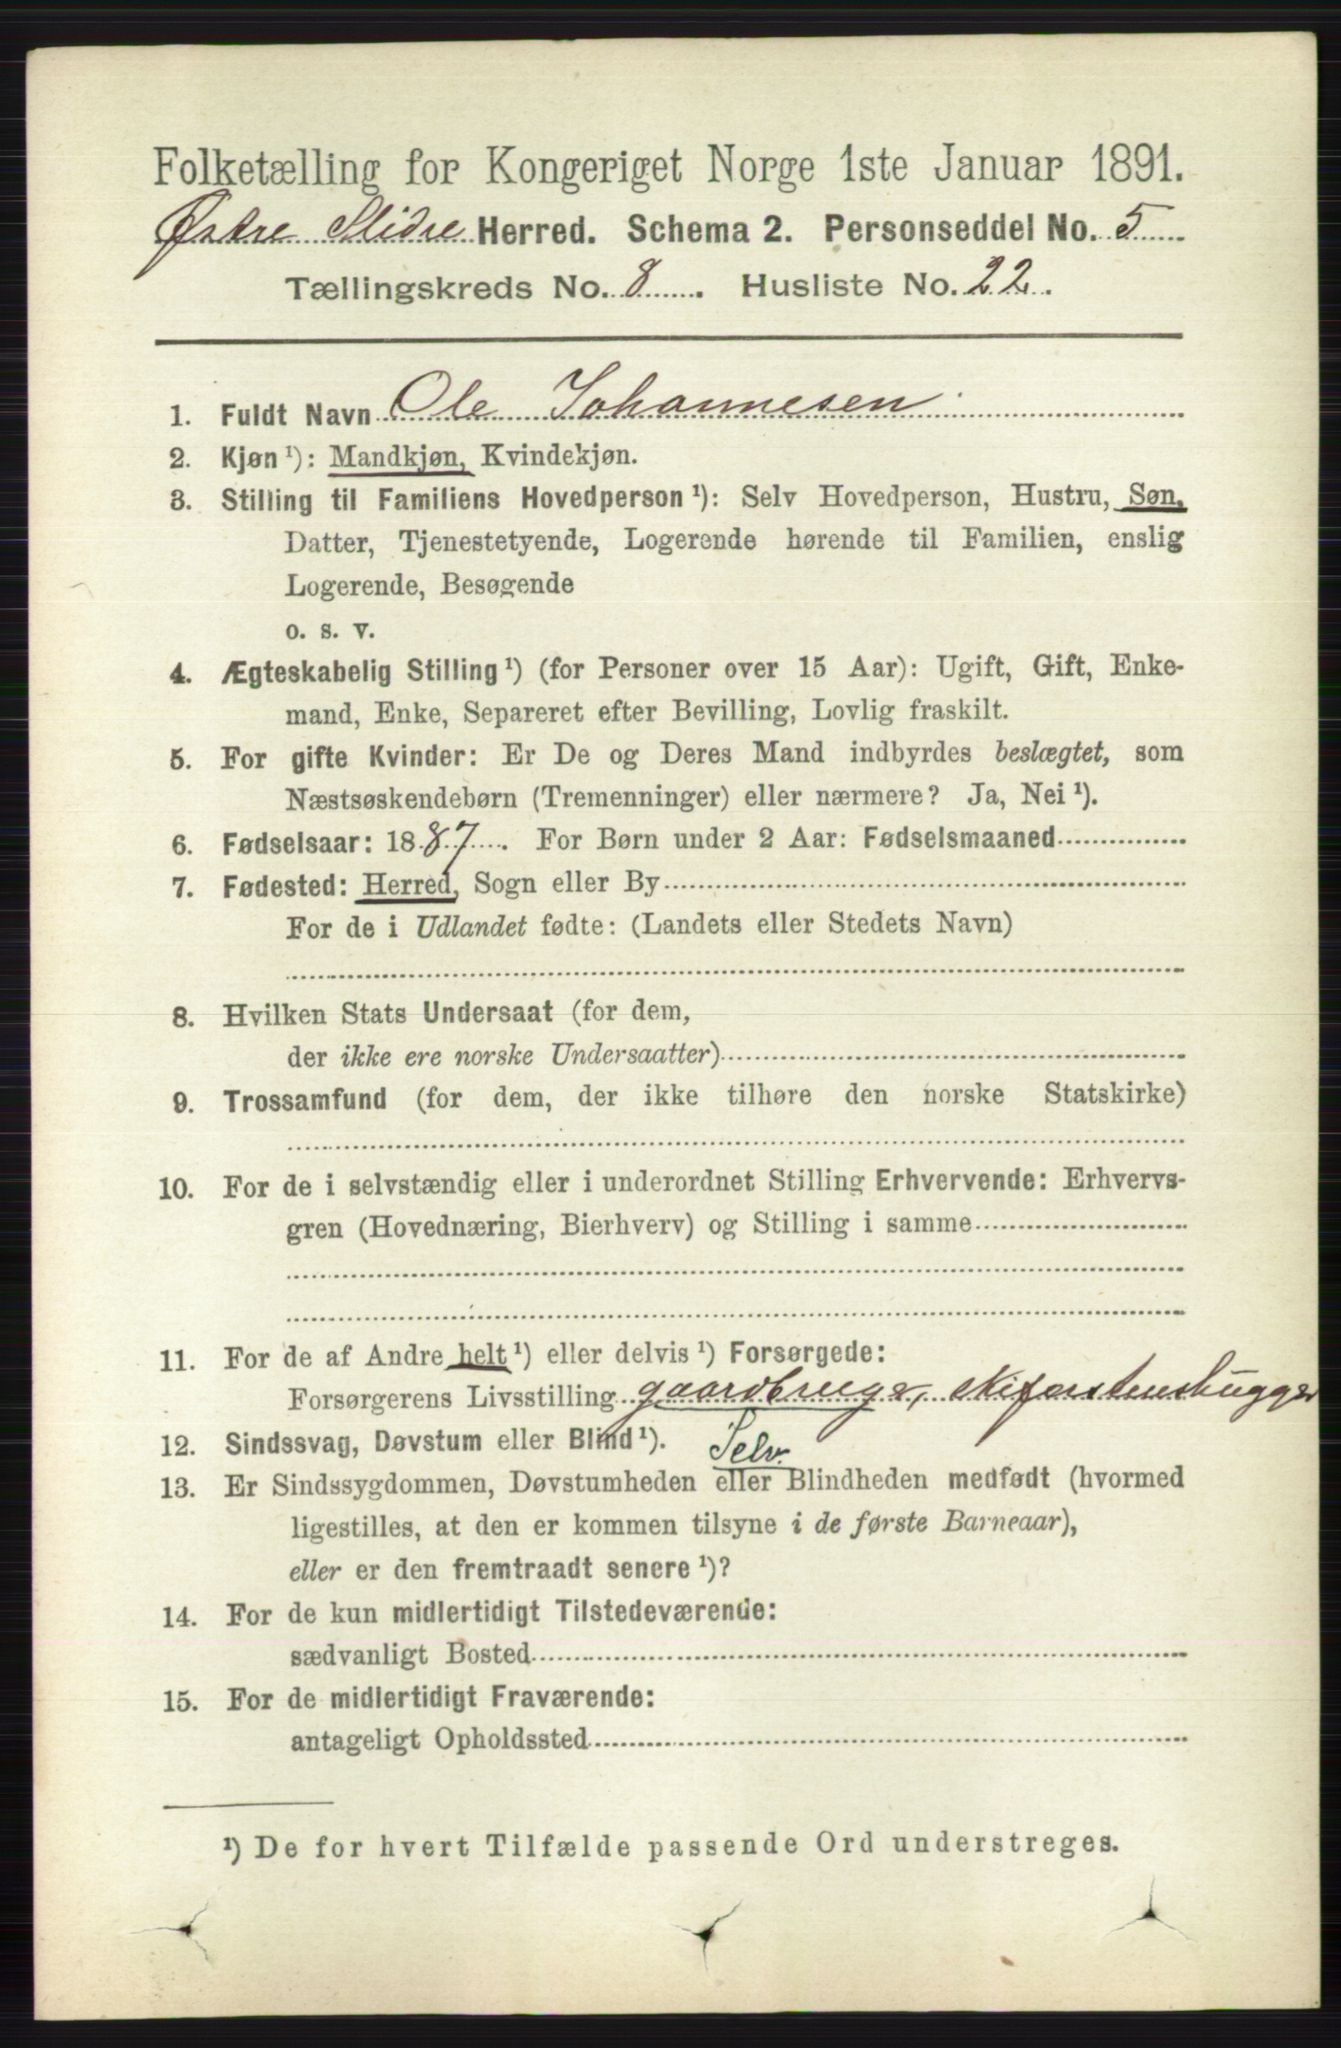 Folketælling for Kongeriget Norge 1ste Januar 1891.
Østre Slidre Herred. Schema 2. Personseddel No. 5
Tællingskreds No. 8. Husliste No. 22.
1. Fuldt Navn Ole Johannesen
2. Kjøn ¹): Mandkjøn, Kvindekjøn.
3. Stilling til Familiens Hovedperson ¹): Selv Hovedperson, Hustru, Søn,
Datter, Tjenestetyende, Logerende hørende til Familien, enslig
Logerende, Besøgende
o. s. v.
4. Ægteskabelig Stilling ¹) (for Personer over 15 Aar): Ugift, Gift, Enke-
mand, Enke, Separeret efter Bevilling, Lovlig fraskilt.
5. For gifte Kvinder: Er De og Deres Mand indbyrdes beslægtet, som
Næstsøskendebørn (Tremenninger) eller nærmere? Ja, Nei ¹).
6. Fødselsaar: 1887. For Børn under 2 Aar: Fødselsmaaned
7. Fødested: Herred, Sogn eller By
For de i Udlandet fødte: (Landets eller Stedets Navn)
8. Hvilken Stats Undersaat (for dem,
der ikke ere norske Undersaatter)
9. Trossamfund (for dem, der ikke tilhøre den norske Statskirke)
10. For de i selvstændig eller i underordnet Stilling Erhvervende: Erhvervs-
gren (Hovednæring, Bierhverv) og Stilling i samme
11. For de af Andre helt ¹) eller delvis ¹) Forsørgede:
Forsørgerens Livsstilling gaardbruger, skiferstenshugger
12. Sindssvag, Døvstum eller Blind ¹). Selv.
13. Er Sindssygdommen, Døvstumheden eller Blindheden medfødt (hvormed
ligestilles, at den er kommen tilsyne i de første Barneaar),
eller er den fremtraadt senere ¹)?
14. For de kun midlertidigt Tilstedeværende:
sædvanligt Bosted
15. For de midlertidigt Fraværende:
antageligt Opholdssted
¹) De for hvert Tilfælde passende Ord understreges.